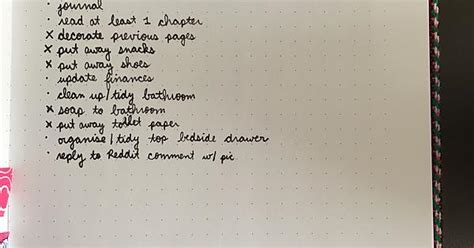 · journal
· read at least 1 chapter
x decorate previous pages
x put away snacks
x put away shoes
· update finances
· clean up/tidy bathroom
x soap to bathroom
x put away toilet paper
· organise/tidy top bedside drawer
· reply to Reddit comment w/ pic